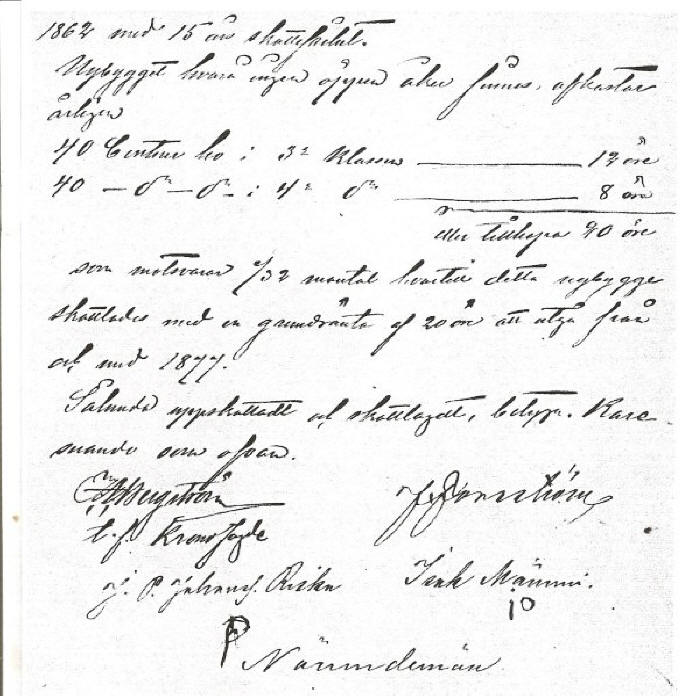 1862 med 15 års skattefrihet.
Nybygget hvara ingen öppen åker finnes, afkastar
årligen
40 Centner hö i 3e Klassen 12 öre
40 — do — do — i 4e do 8 öre
eller tillhopa 20 öre
som motsvarar 1/32 mantal hvartill detta nybygge
skattlades med en grundränta af 20 öre att utgå från
och med 1877.
Sålunda uppskattadt och skattlagdt, betyga. Kare
suando som ofvan.
Bergström
t. f. Kronofogde
J. P. Johans. Riska Isak Mämmi.
Nämndemän